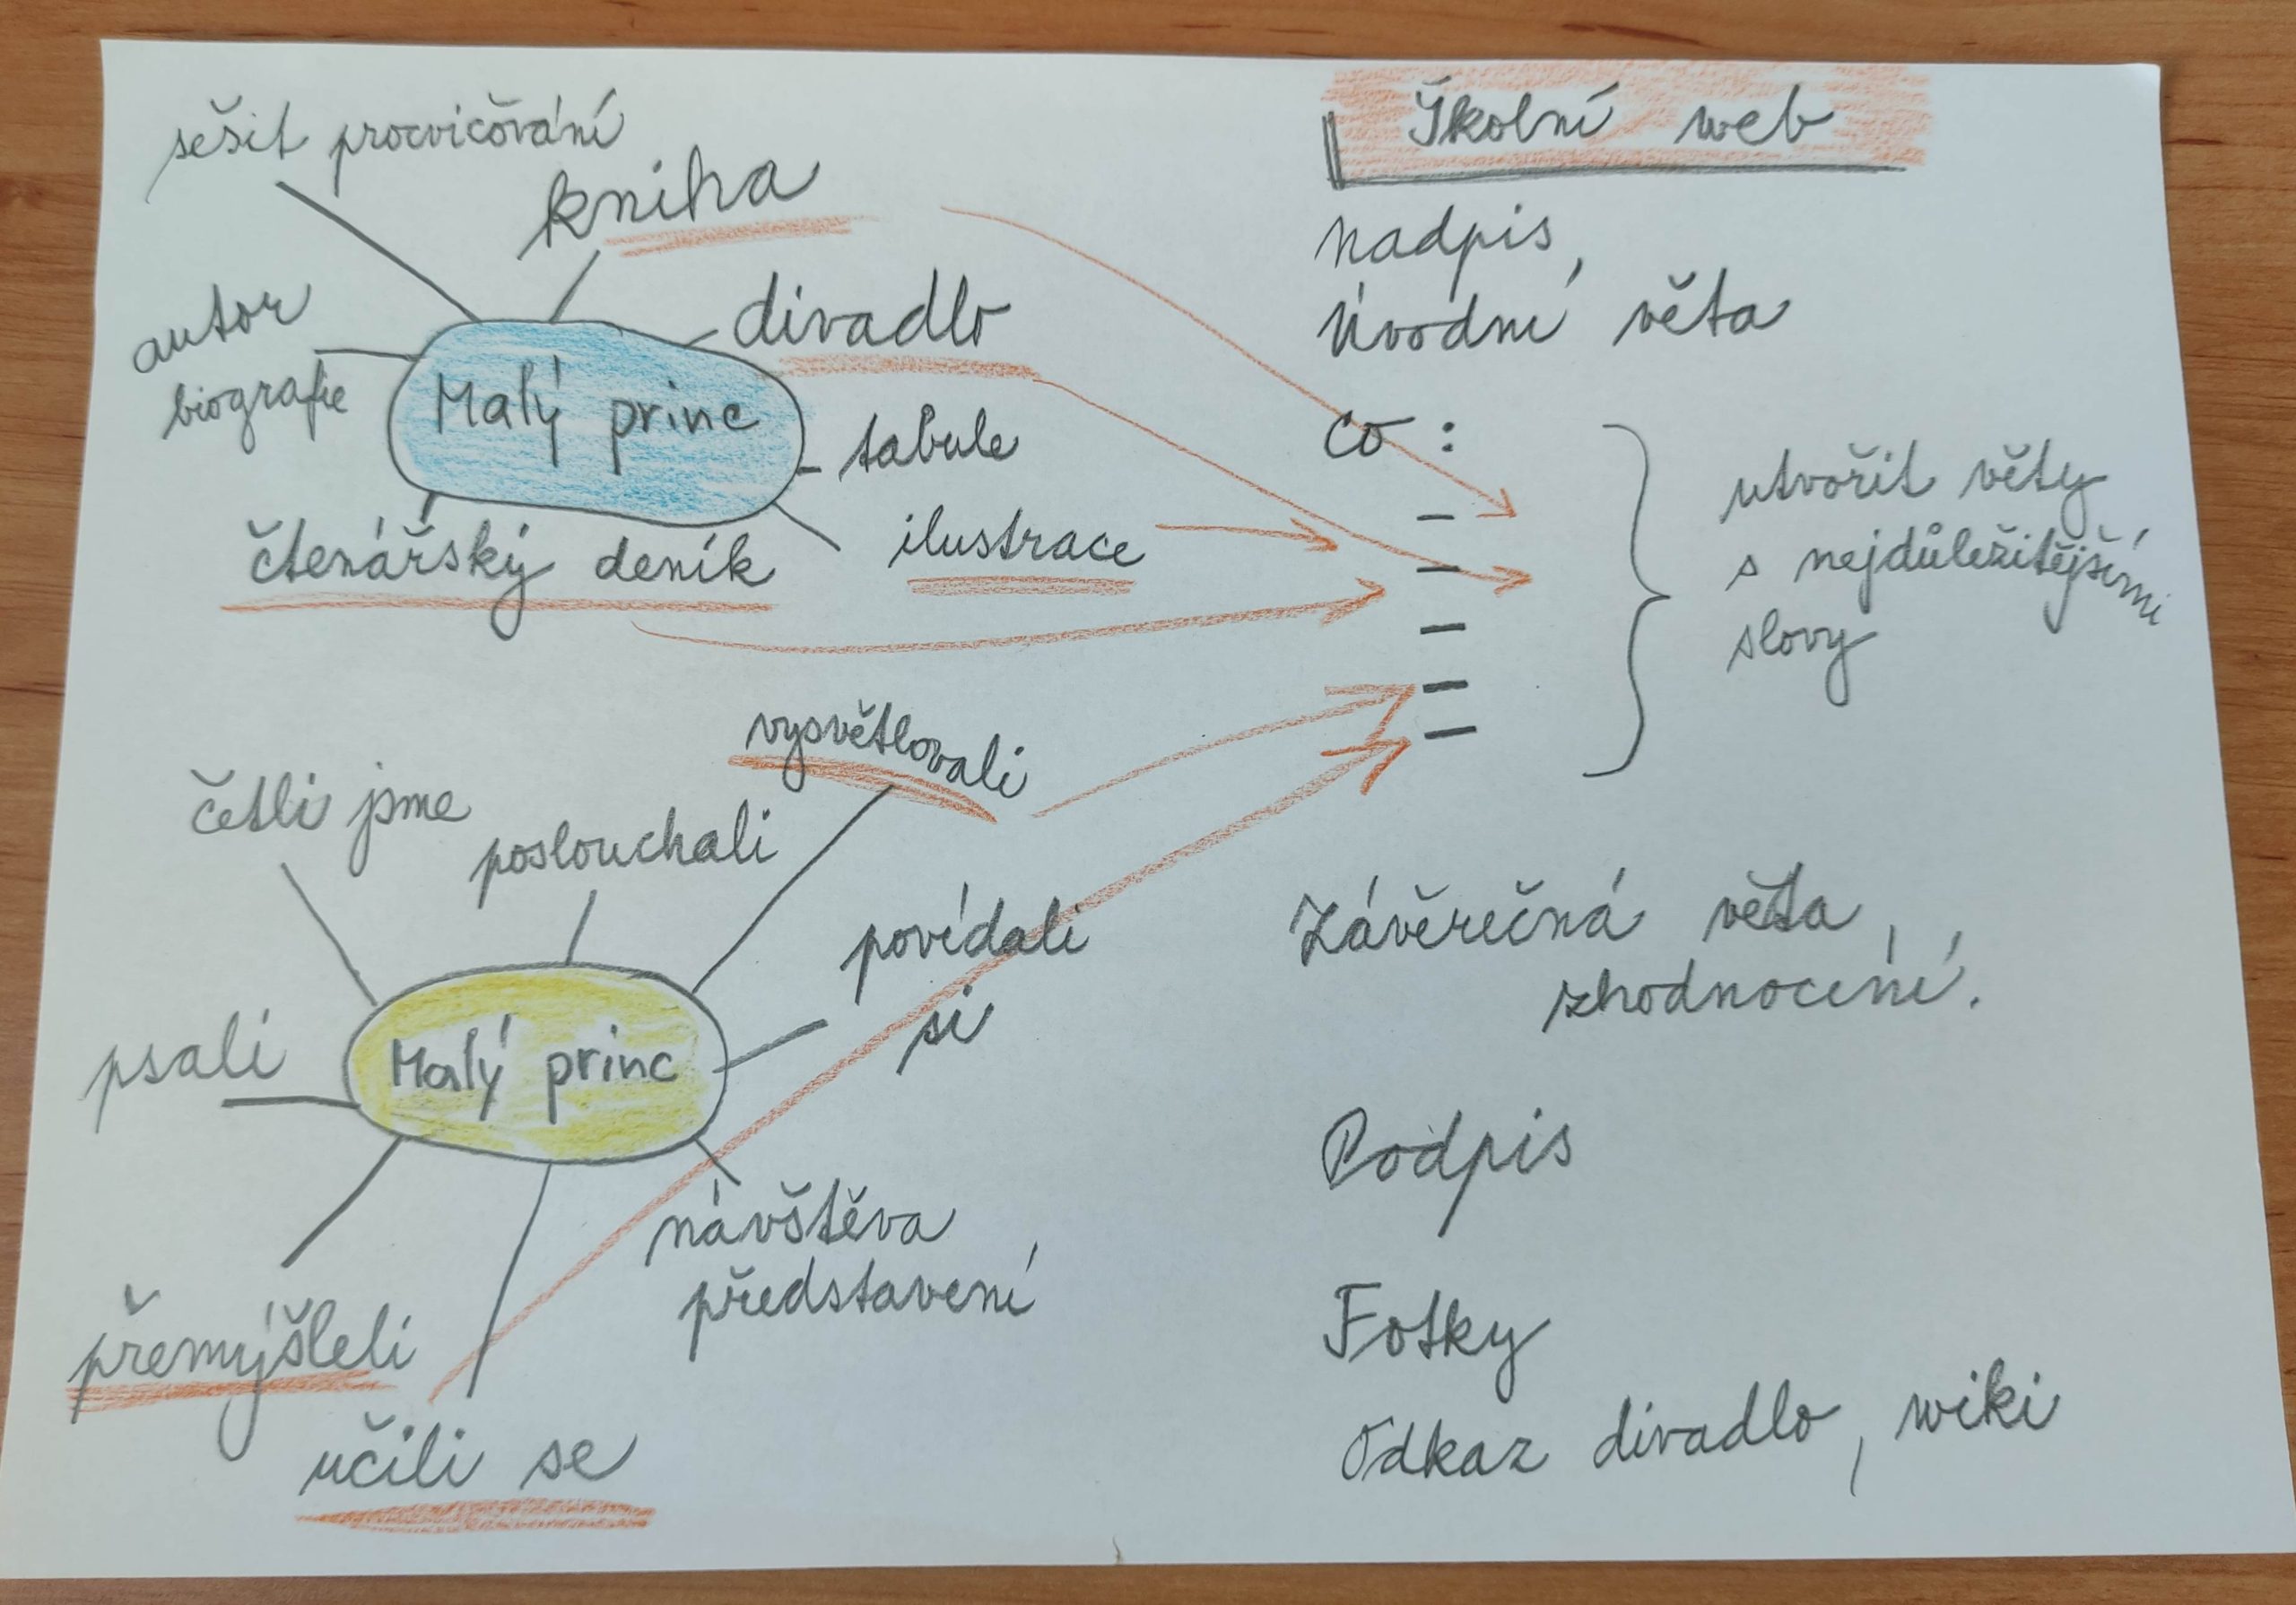 sešit procvičování
kniha
divadlo
autor
biografie
Malý princ
tabule
ilustrace
čtenářský deník
vysvětlovali
četli jsme
poslouchali
povídali
si
psali
Malý princ
návštěva
představení
přemýšleli
učili se
Školní web
Nadpis
Úvodní věta
co :
–
–
–
–
–
utvořit věty
s nejdůležitějšími
slovy
Závěrečná věta,
zhodnocení.
Podpis
Fotky
Odkaz divadlo, wiki